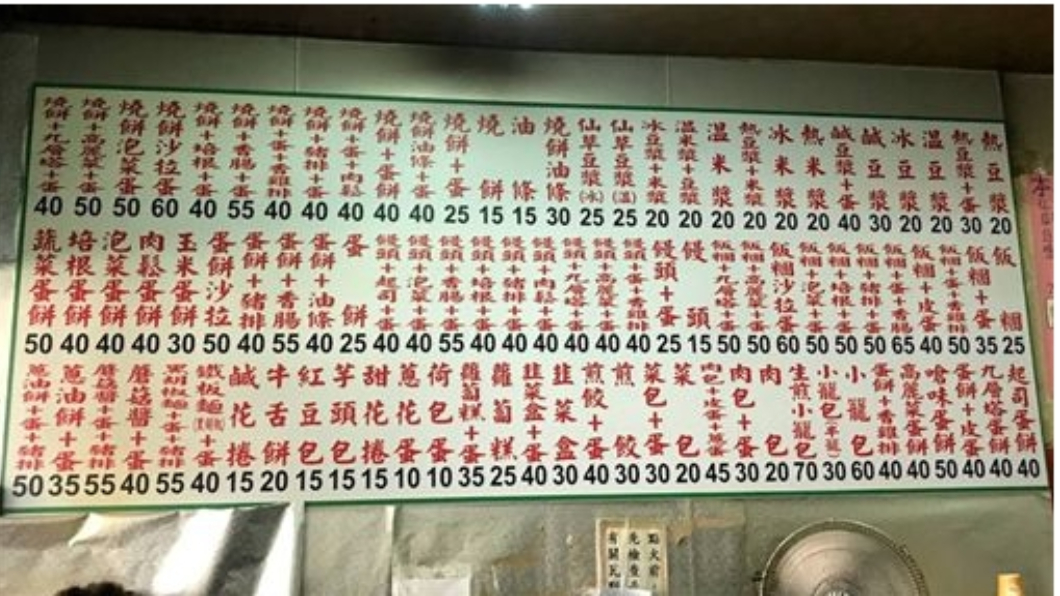 熱豆漿 20
熱豆漿+蛋 30
溫豆漿 20
冰豆漿 20
鹹豆漿 30
鹹豆漿+蛋 40
熱米漿 20
冰米漿 20
熱豆漿+米漿 20
溫米漿 20
溫米漿+豆漿 20
冰豆漿+米漿 20
仙草豆漿(溫) 25
仙草豆漿(冰) 25
燒餅油條 30
油條 15
燒餅 15
燒餅+蛋 25
燒餅油條+蛋 40
燒餅+蛋餅 40
燒餅+蛋+肉鬆 40
燒餅+蛋+豬排 40
燒餅+蛋+香雞排 40
燒餅+香腸+蛋 55
燒餅+培根+蛋 40
燒餅沙拉蛋 60
燒餅泡菜蛋 50
燒餅+高麗菜+蛋 50
燒餅+九層塔+蛋 40
飯糰 25
飯糰+蛋 35
飯糰+蛋+香雞排 50
飯糰+皮蛋 40
飯糰+香腸+蛋 65
飯糰+豬排+蛋 50
飯糰+培根+蛋 50
飯糰+泡菜+蛋 50
飯糰沙拉蛋 60
飯糰+高麗菜+蛋 50
飯糰+九層塔+蛋 50
饅頭 15
饅頭+蛋 25
饅頭+蛋+香雞排 40
饅頭+高麗菜+蛋 40
饅頭+九層塔+蛋 40
饅頭+肉鬆+蛋 40
饅頭+豬排+蛋 40
饅頭+培根+蛋 40
饅頭+香腸+蛋 55
饅頭+泡菜+蛋 40
饅頭+起司+蛋 40
蛋餅 25
蛋餅+油條 40
蛋餅+香腸 55
蛋餅+豬排 40
蛋餅沙拉 50
玉米蛋餅 30
肉鬆蛋餅 40
泡菜蛋餅 40
培根蛋餅 40
蔬菜蛋餅 50
起司蛋餅 40
九層塔蛋餅 40
蛋餅+皮蛋 40
嗆味蛋餅 50
高麗菜蛋餅 40
蛋餅+香雞排 40
小籠包 60
小籠包(半籠) 30
生煎小籠包 70
肉包 20
肉包+蛋 30
肉包+皮蛋+蔥蛋 45
菜包 20
菜包+蛋 30
煎餃 30
煎餃+蛋 40
韭菜盒 30
韭菜盒+蛋 40
蘿蔔糕 25
蘿蔔糕+蛋 35
荷包蛋 10
蔥花蛋 10
甜花捲 15
芋頭包 15
紅豆包 15
牛舌餅 20
鹹花捲 15
鐵板麵(黑胡椒)+蛋 40
黑胡椒麵+蛋+豬排 55
蘑菇醬+蛋 40
蘑菇醬+蛋+豬排 55
蔥油餅+蛋 35
蔥油餅+蛋+豬排 50
點火前
先檢查
有關瓦